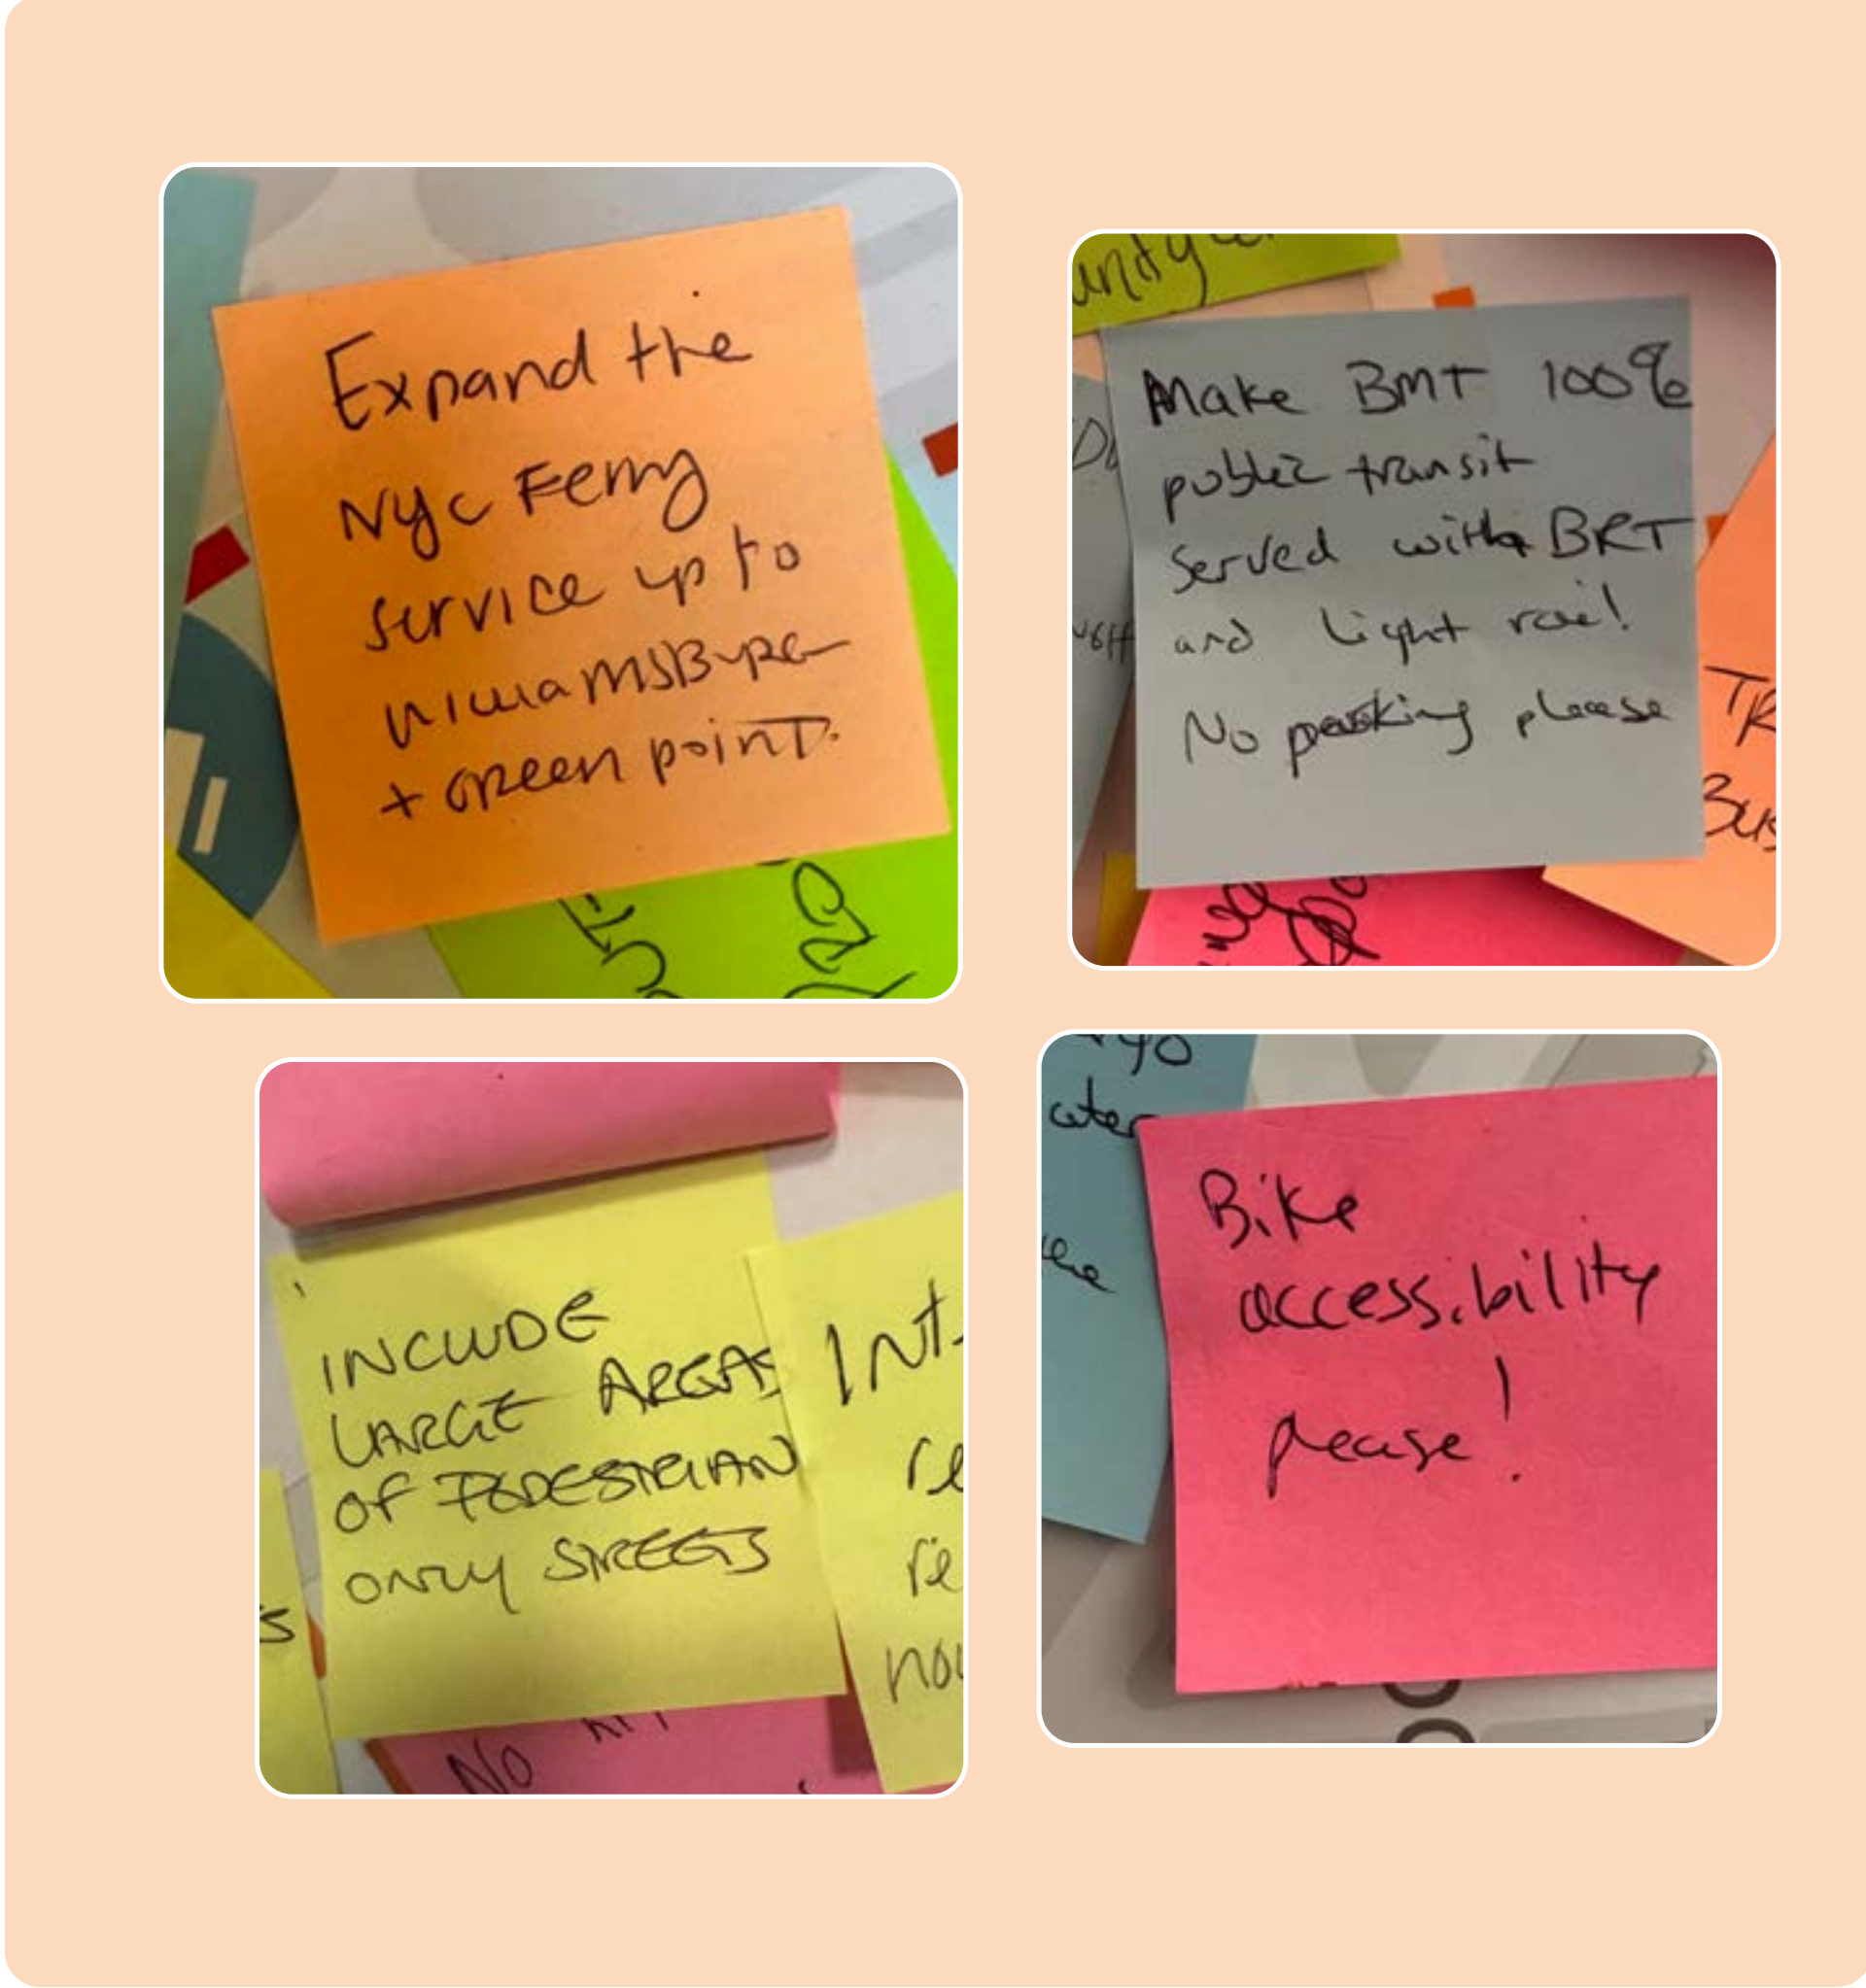 Expand the
NYC Ferry
service up to
Williamsburg
+ Greenpoint.
unity
Make BMT 100%
public transit
served with BRT
and light rail!
No parking please
TR
Bus
INCLUDE
LARGE AREAS
OF PEDESTRIAN
ONLY STREETS
INT
re
re
nou
S
No
yo
ater
Bike
accessibility
please!